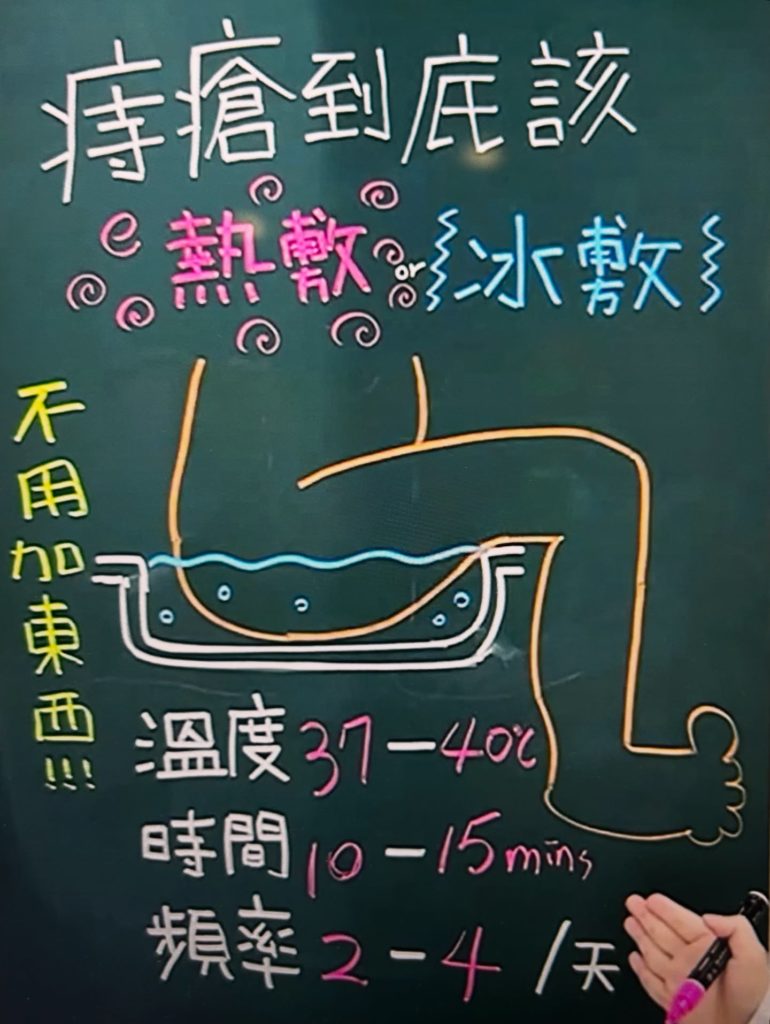 痔瘡到底該
熱敷or冰敷
不用加東西!!!
溫度37-40℃
時間10-15mins
頻率2-4/天